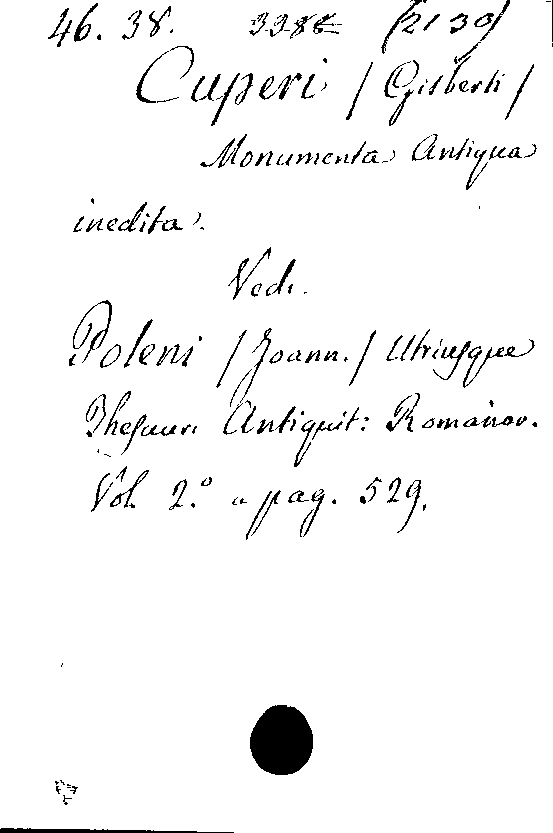 46. 38. 3386 (2130)
Cuperi / Gisberti /
Monumenta Antiqua
inedita.
Vedi.
Poleni / Joann. / Utriusque
Thesauri Antiquit: Romanor.
Vol. 2.° a pag. 529.